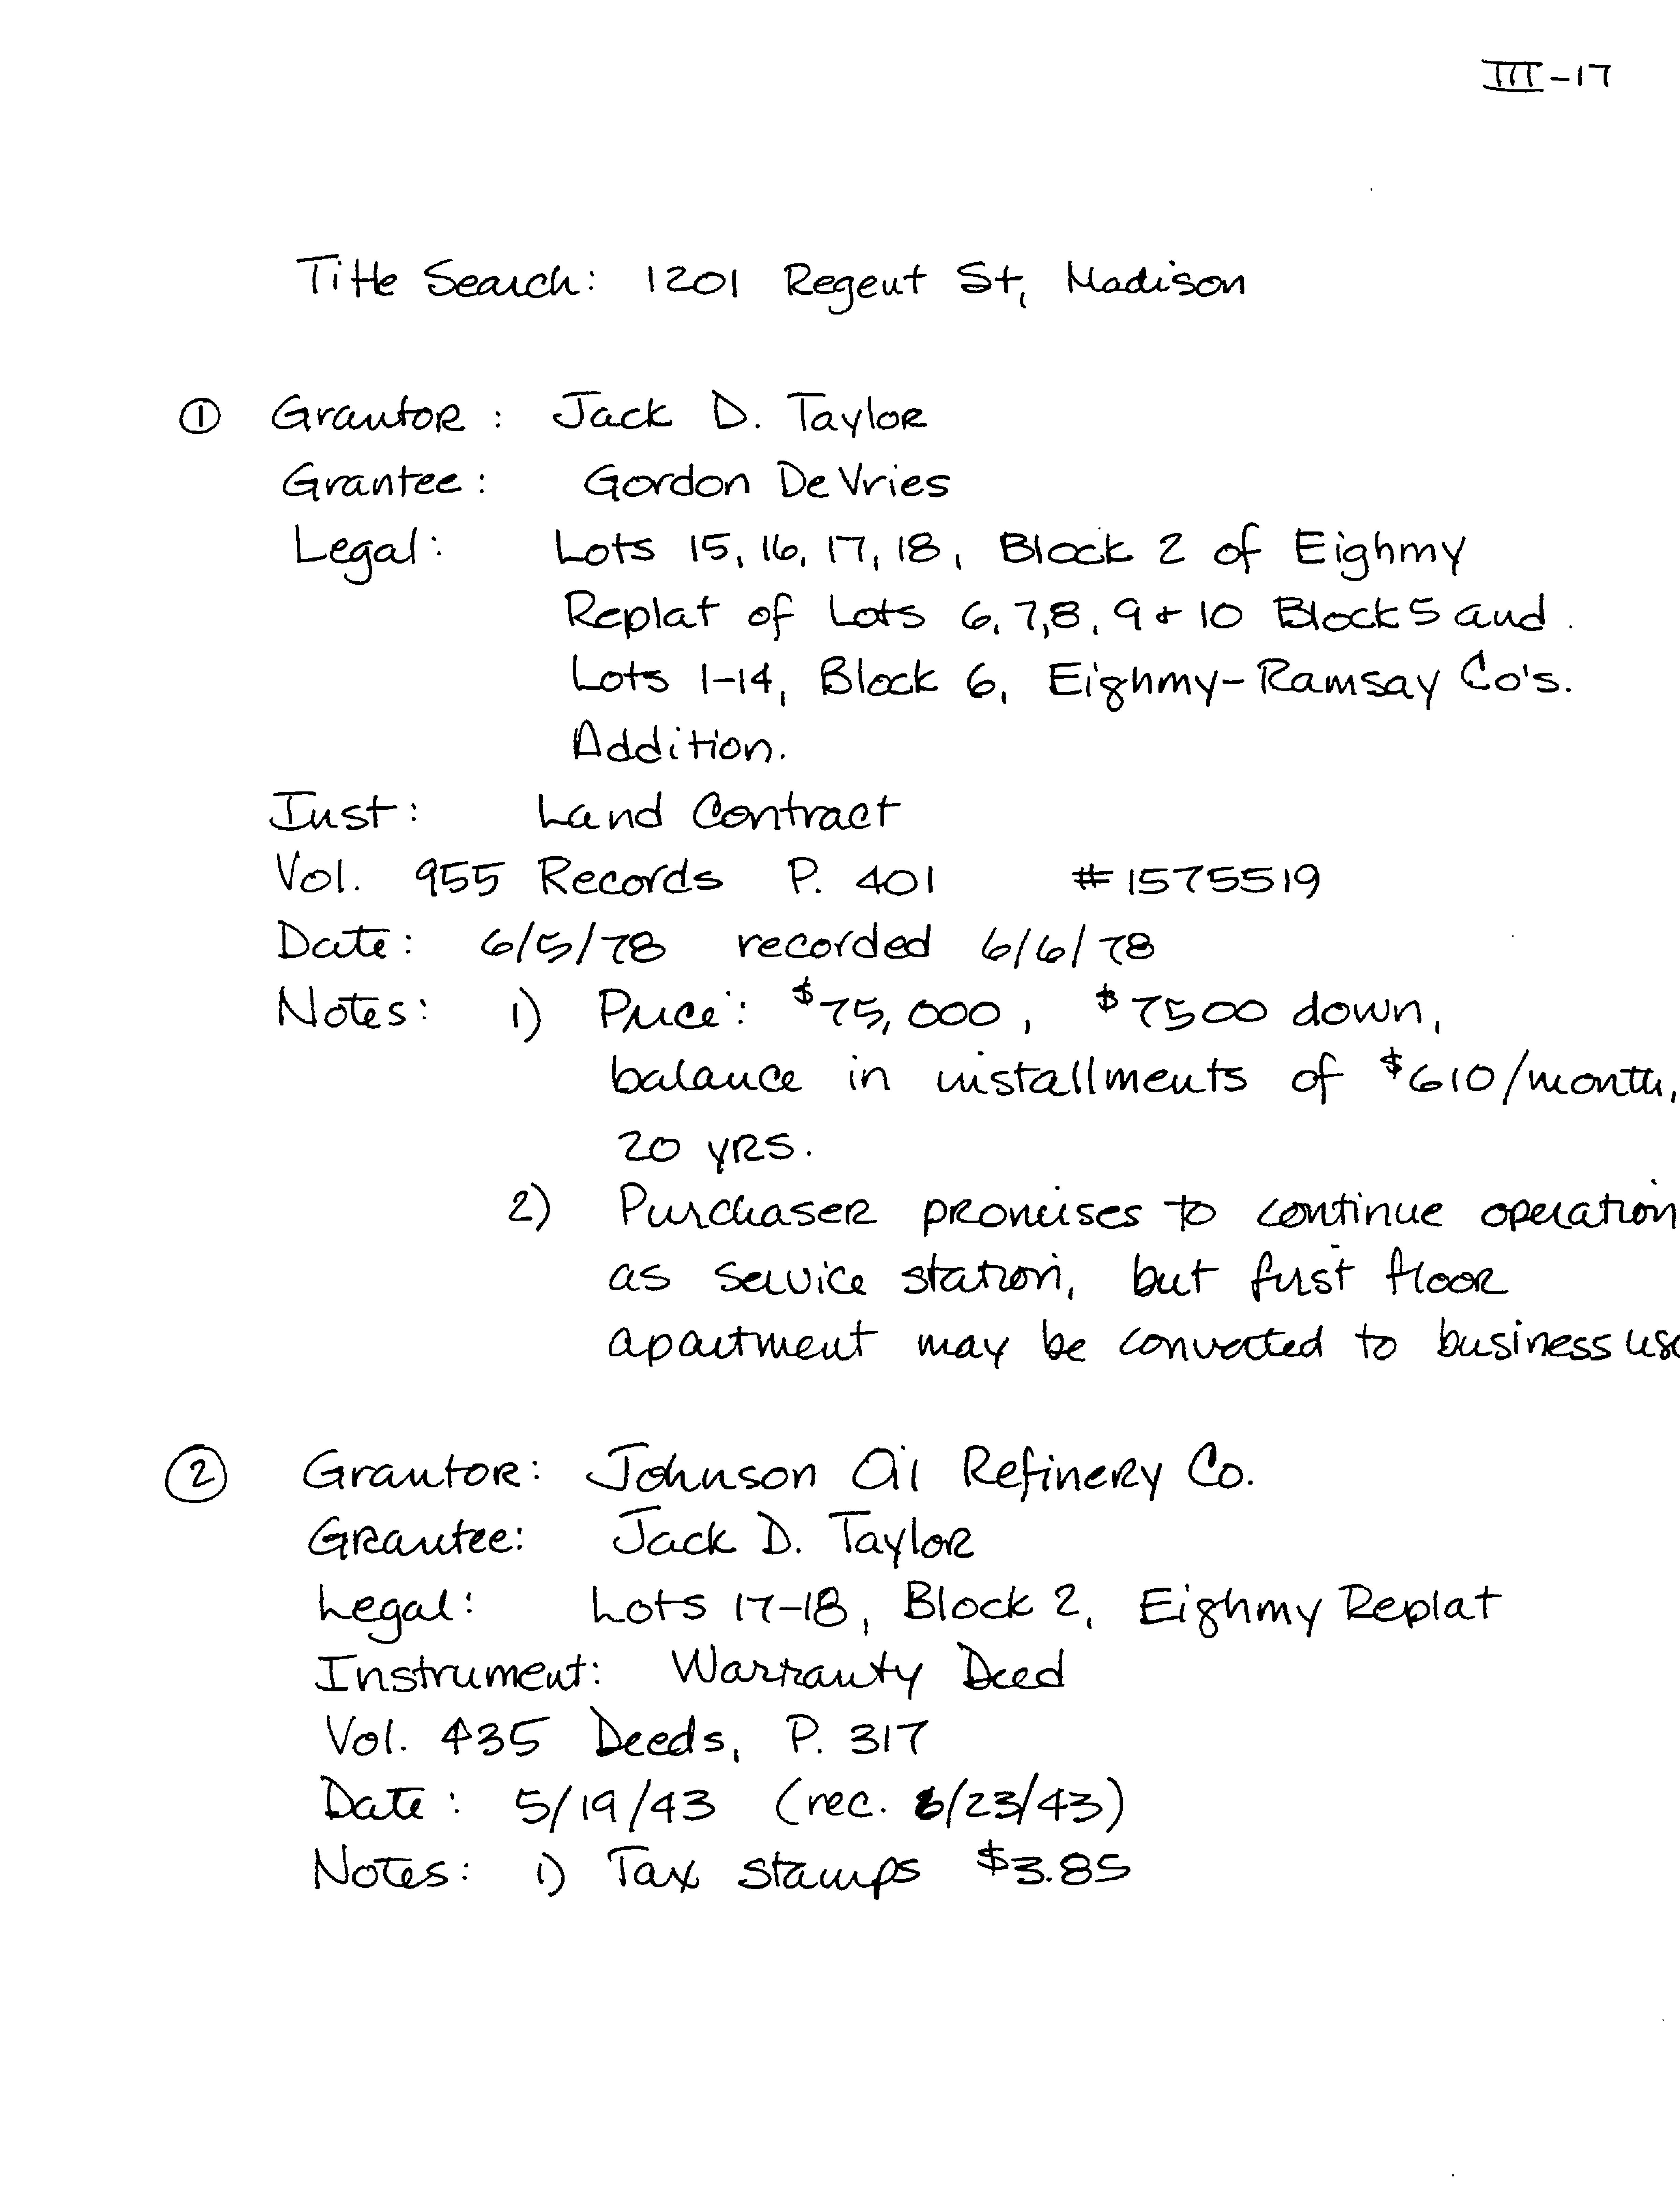 III-17
Title Search: 1201 Regent St, Madison
① Grantor: Jack D. Taylor
Grantee: Gordon DeVries
Legal: Lots 15, 16, 17, 18, Block 2 of Eighmy
Replat of Lots 6, 7, 8, 9 + 10 Block 5 and
Lots 1-14, Block 6, Eighmy-Ramsay Co's.
Addition.
Inst: Land Contract
Vol. 955 Records P. 401 #1575519
Date: 6/5/78 recorded 6/6/78
Notes: 1) Price: $75,000, $7500 down,
balance in installments of $610/month,
20 yrs.
2) Purchaser promises to continue operation
as service station, but first floor
apartment may be converted to business
② Grantor: Johnson Oil Refinery Co.
Grantee: Jack D. Taylor
Legal: Lots 17-18, Block 2, Eighmy Replat
Instrument: Warranty Deed
Vol. 435 Deeds, P. 317
Date: 5/19/43 (rec. 6/23/43)
Notes: 1) Tax stamps $3.85